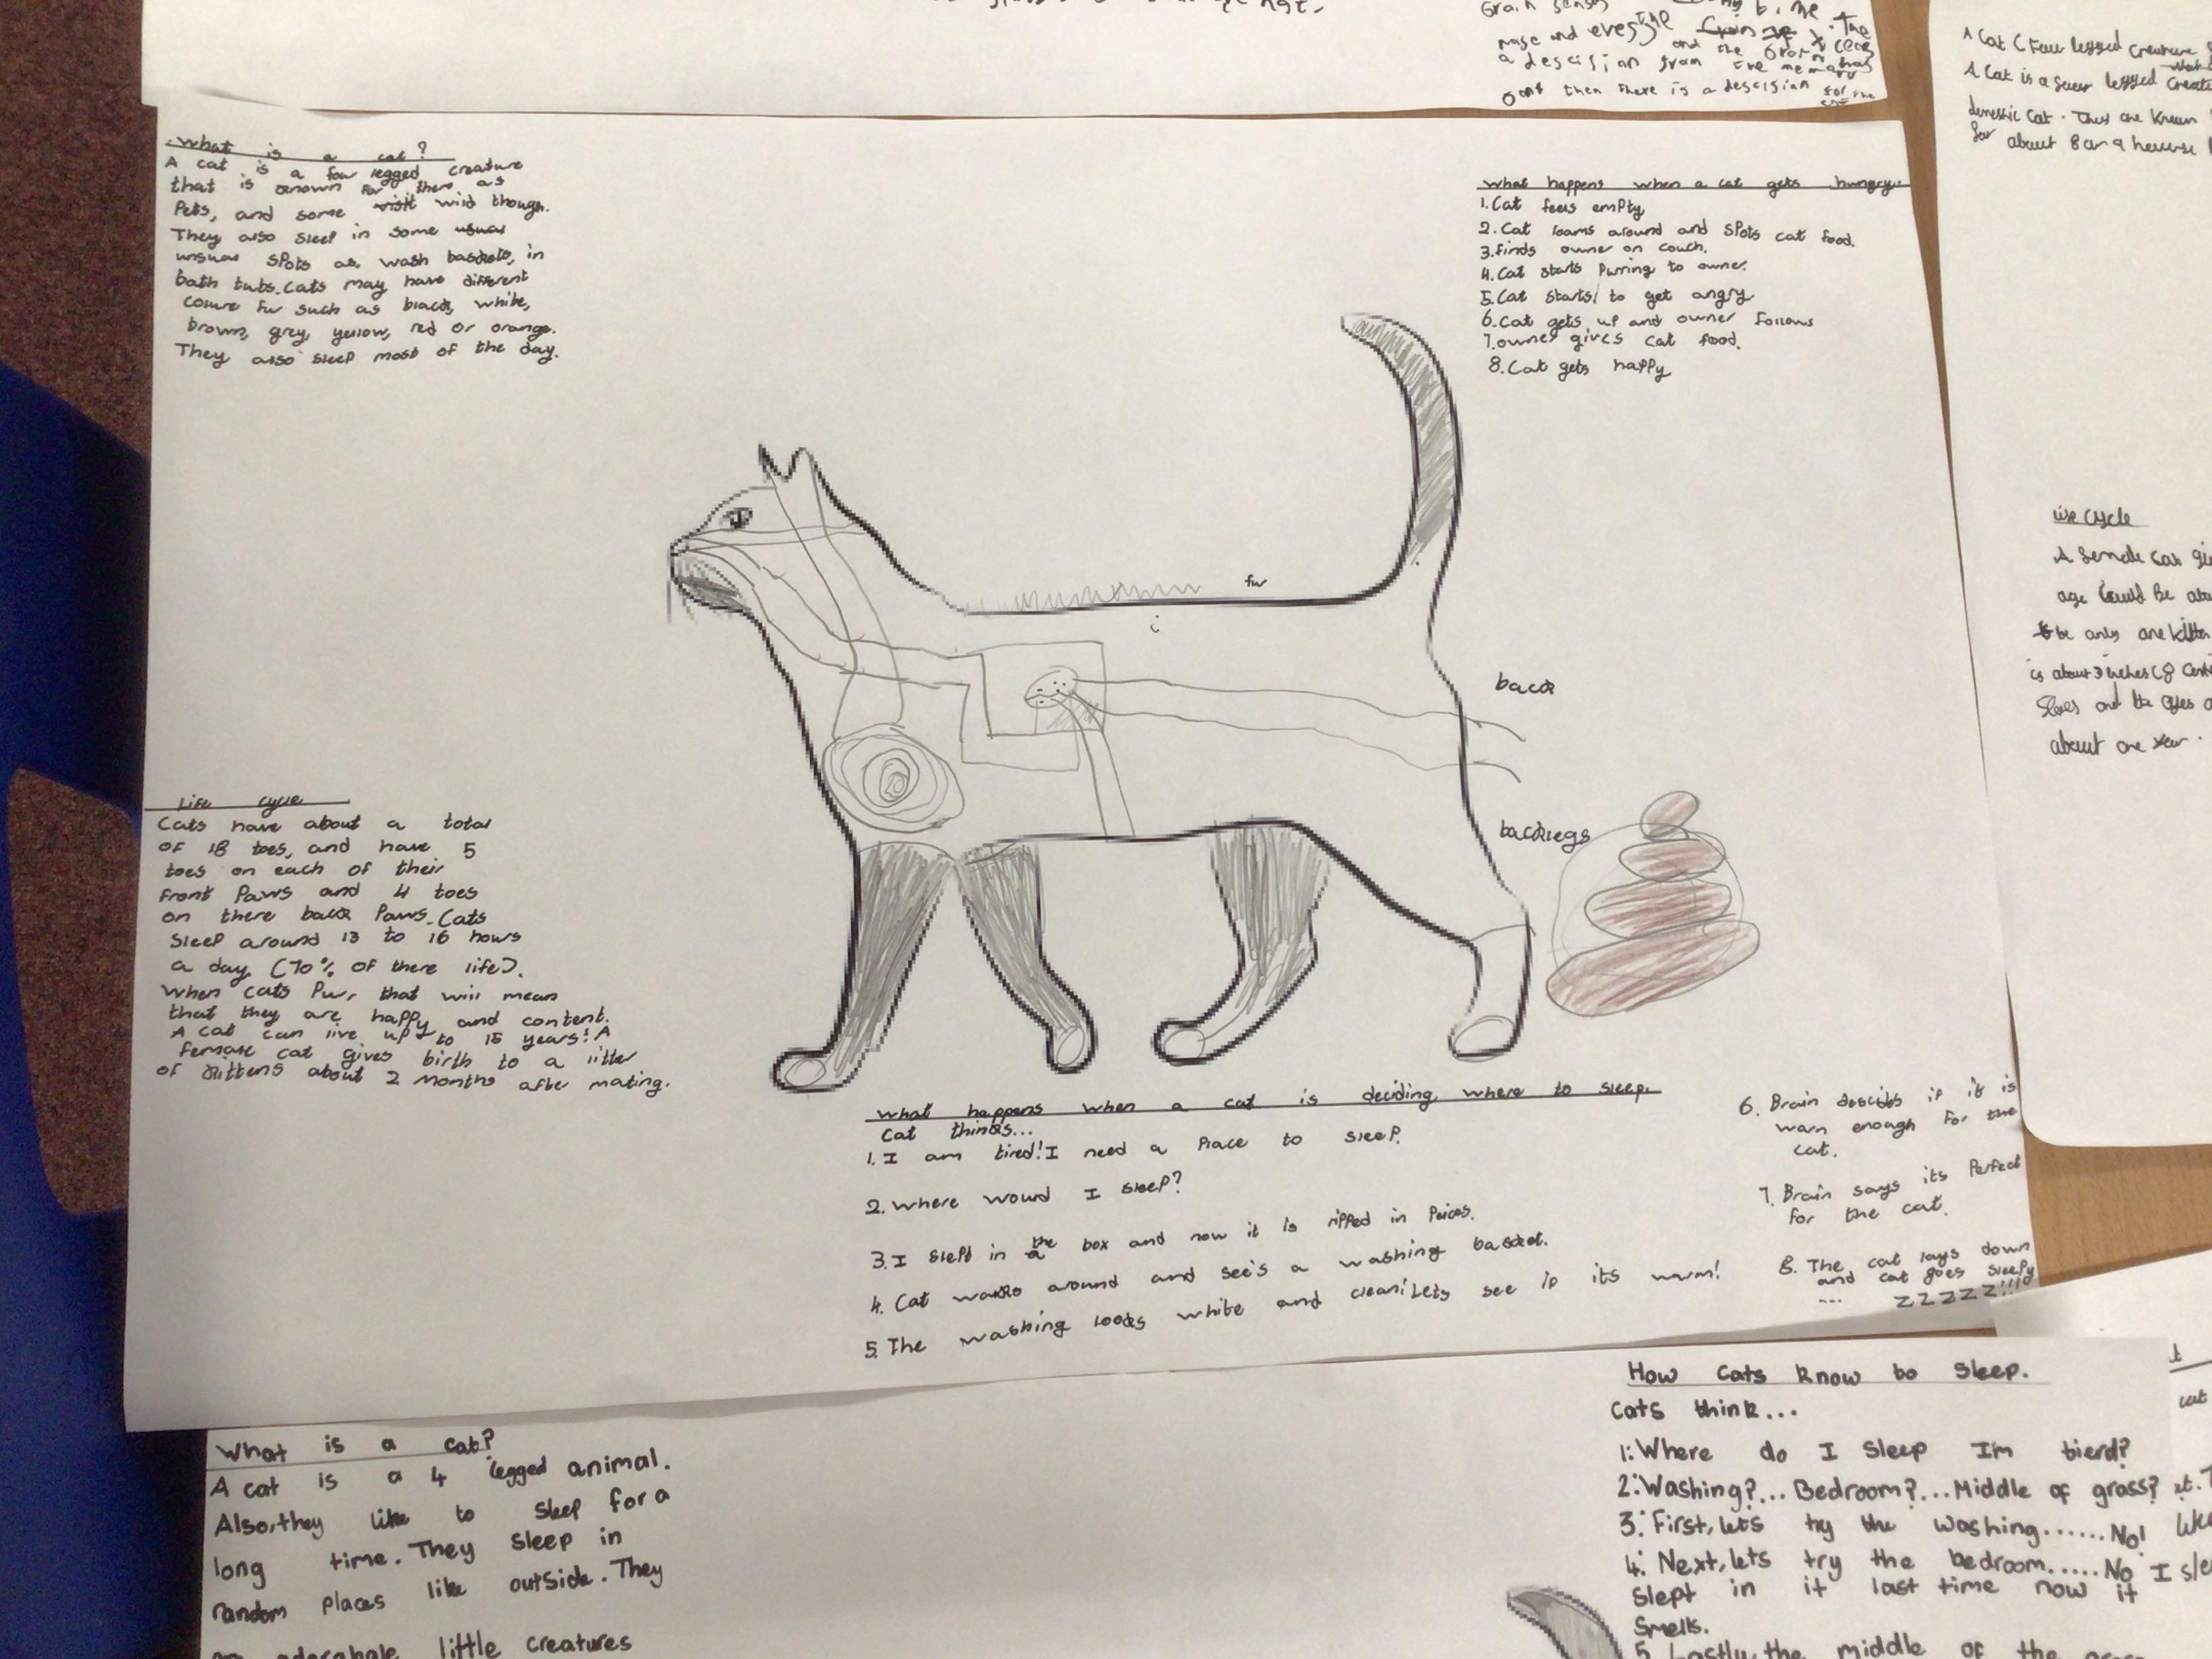 nose and
a descision from
then there is a descision for the
A Cat
A Cat is a legged
domestic Cat. They are Known
for about 8 or 9
What is a cat?
A cat is a four legged creature
that is known for there as
Pets, and some wild though.
They also sleep in some usual
unsual spots as wash baskets, in
bath tubs. Cats may have different
colure fur such as black, white,
brown, grey, yellow, red or orange.
They also sleep most of the day.
What happens when a cat gets hungry.
1. Cat feels empty
2. Cat roams around and spots cat food.
3. finds owner on couch.
4. Cat starts Purring to owner.
5. Cat starts to get angry
6. Cat gets up and owner follows
7. owner gives cat food.
8. Cat gets happy
fur
back
backlegs
Life cycle
Cats have about a total
of 18 toes, and have 5
toes on each of their
front Paws and 4 toes
on there back Paws. Cats
Sleep around 13 to 16 hours
a day. (70% of there life).
When cats Pur, that will mean
that they are happy and content.
A cat can live up to 15 years! A
female cat gives birth to a litter
of kittens about 2 Months after mating.
What happens when a cat is deciding where to sleep.
Cat thinks...
1. I am tired! I need a Place to sleep.
2. Where would I sleep?
3. I slept in the box and now it is ripped in Peices.
4. Cat walks around and see's a washing basket.
5. The washing looks white and clean! Lets see if its warm!
6. Brain descides if it is
warm enough for the
cat.
7. Brain says its Perfect
for the cat.
8. The cat lays down
and cat goes sleepy
... ZZZZZ!!!
Life Cycle
A female Cat
age Could Be
be only one kitten
is about 3 inches (8
and the eyes
about one year.
What is a cat?
A cat is a 4 legged animal.
Also, they like to sleep for a
long time. They sleep in
random places like outside. They
little creatures
How Cats know to Sleep.
Cats think...
1: Where do I Sleep I'm tierd?
2: Washing?... Bedroom?... Middle of grass?
3: First, lets try the washing...... No!
4: Next, lets try the bedroom..... No I
slept in it last time now it
Smells.
5. Lastly, the middle of the
cat